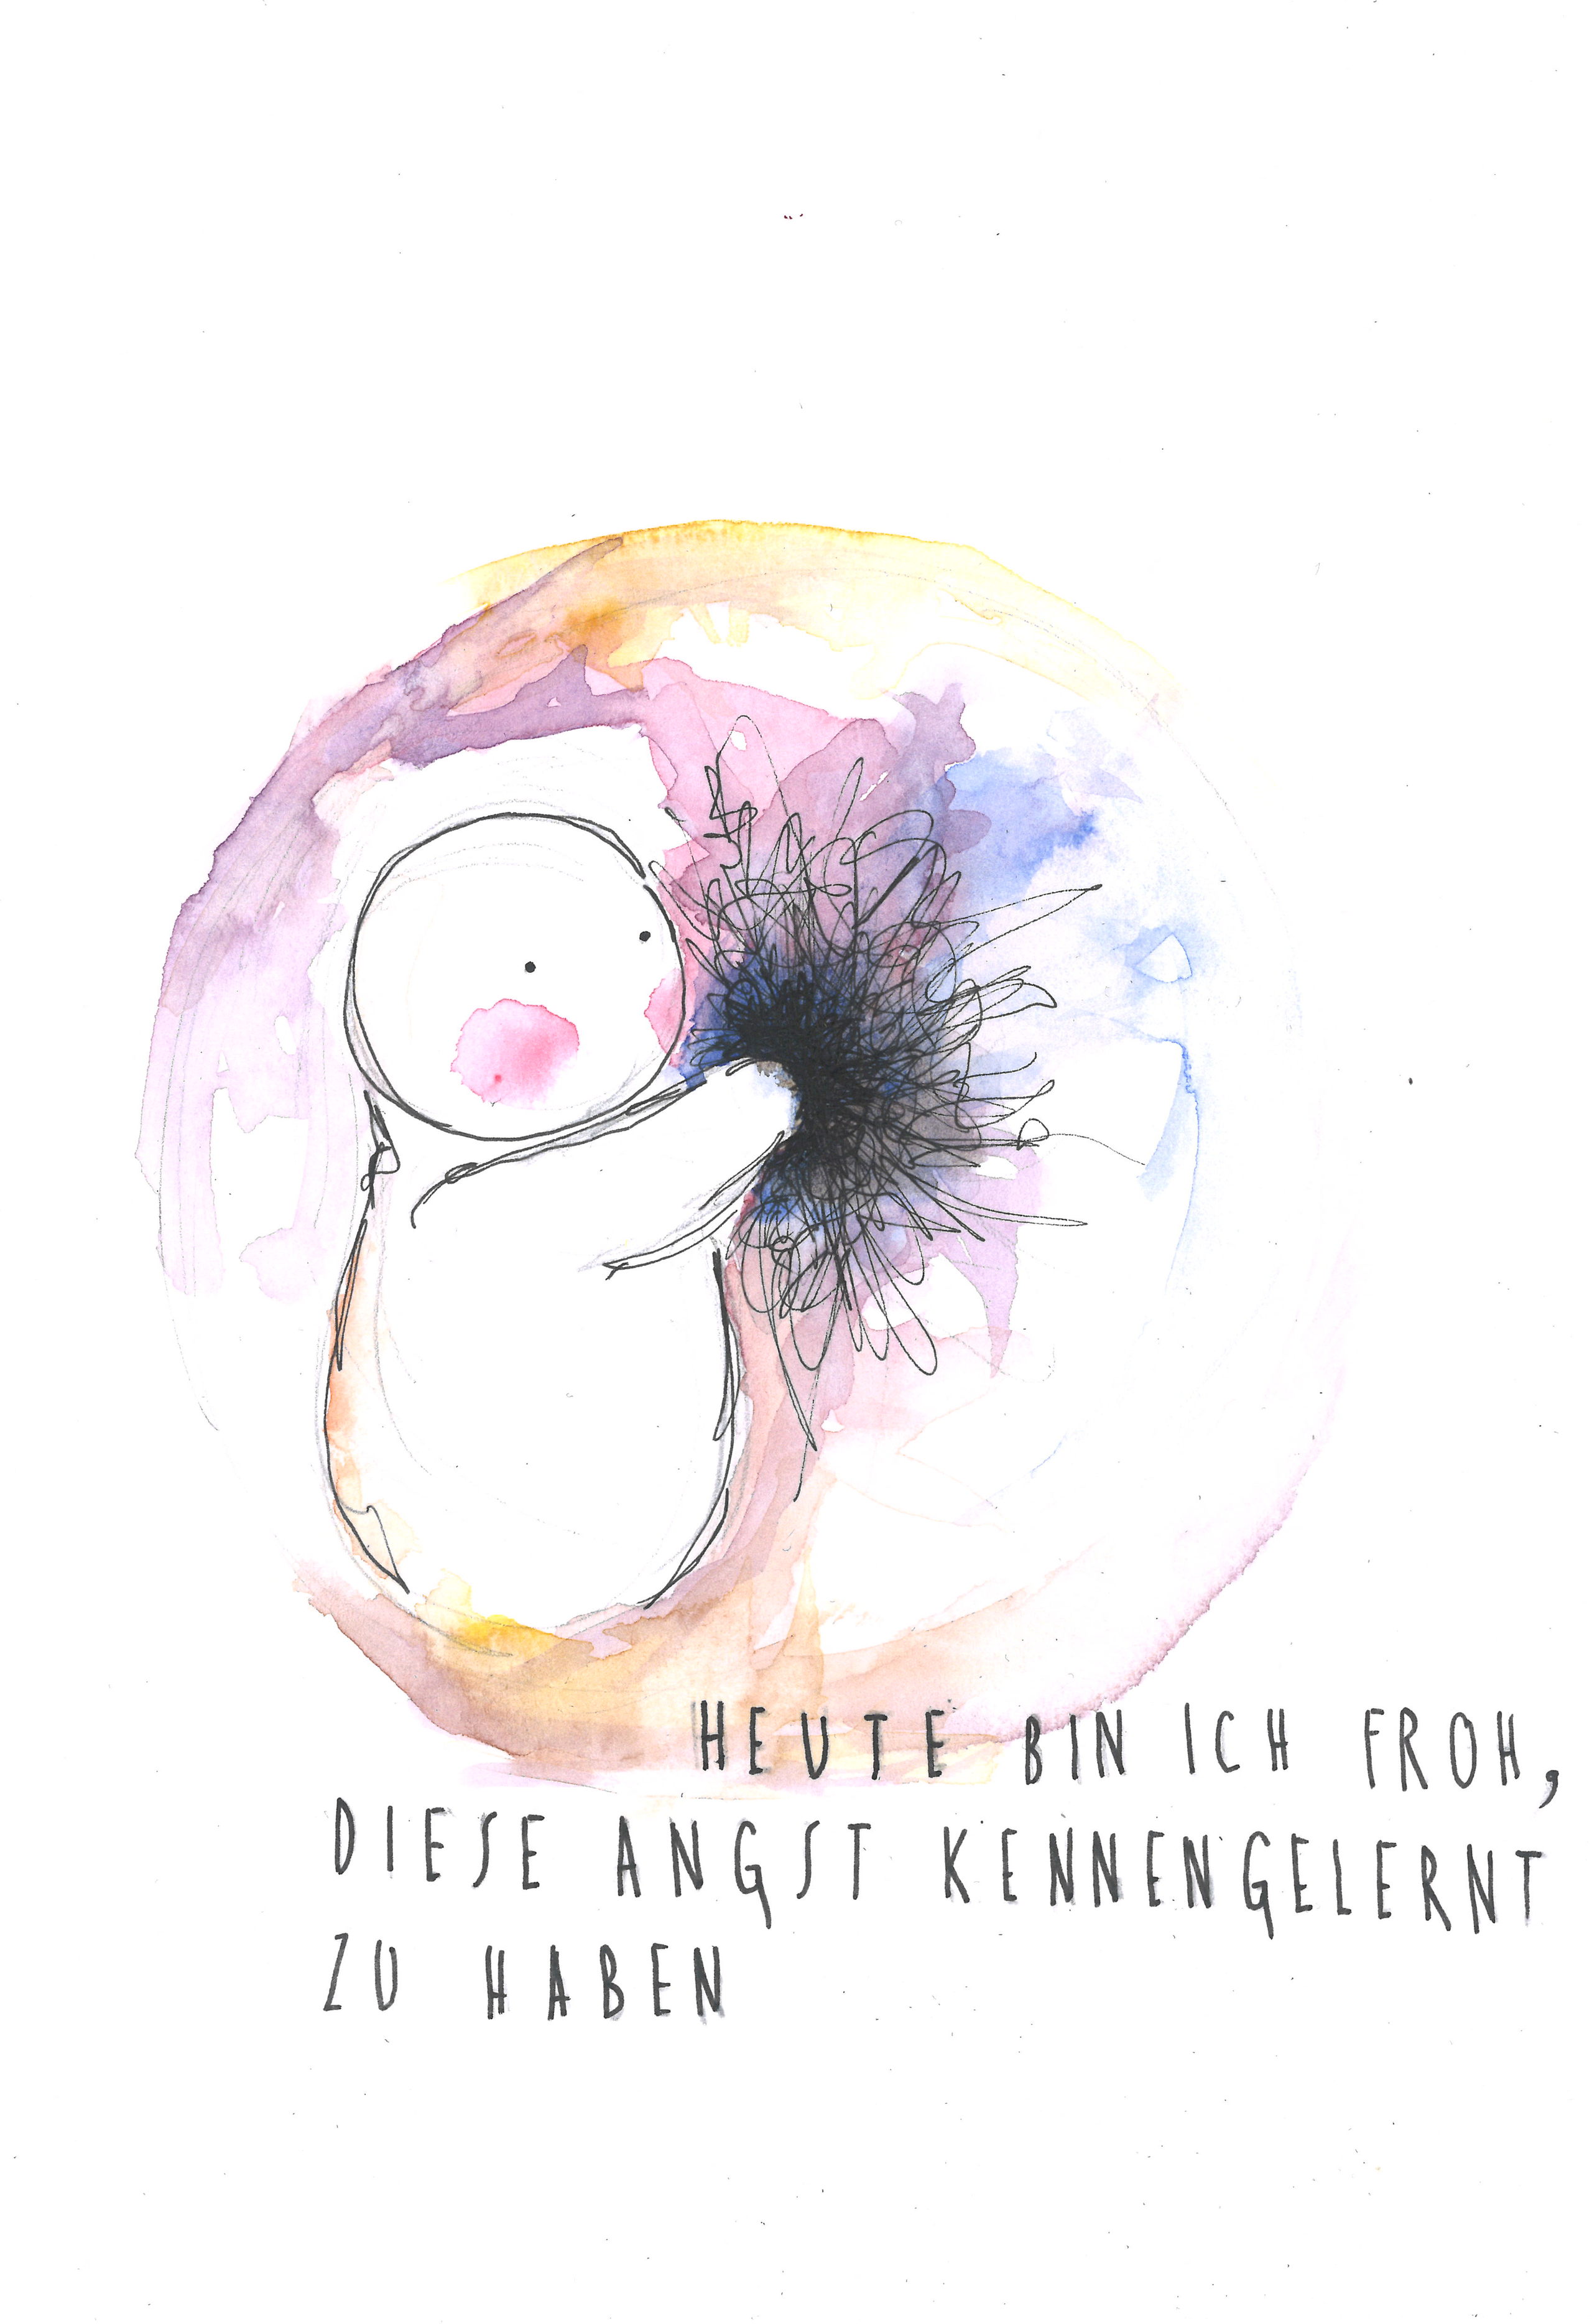 HEUTE BIN ICH FROH,
DIESE ANGST KENNENGELERNT
ZU HABEN